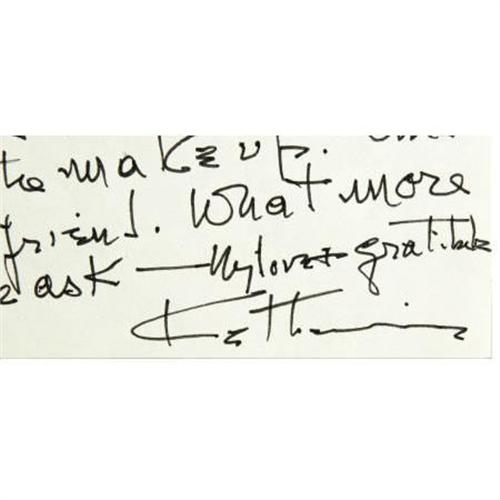 the makeup.
friend. What more
ask — My love + gratitude
Katharine